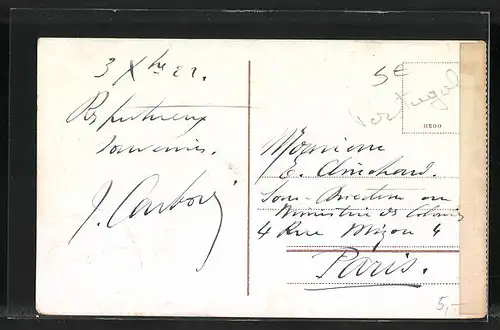 3 Xbre 21.
Respectueux
souvenirs.
5 €
Portugal
HEDO
Monsieur
E.
Sous-Directeur au
Ministère des Colonies
4 Rue Mizon 4
Paris.
5,-